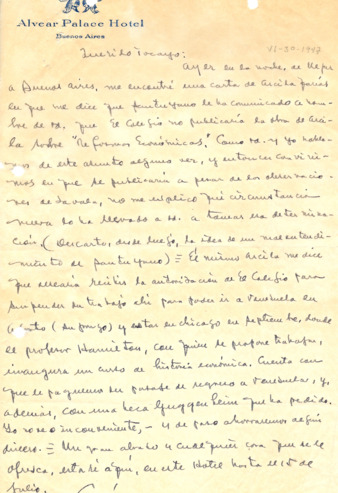 Alvear Palace Hotel
Buenos Aires
VI-30-1947
Querido tocayo:
Ayer en la noche, de llegar
a Buenos Aires, me encontré una carta de Arcila Farías
en que me dice que Santullano le ha comunicado a nom-
bre de ud. que El Colegio no publicaría la obra de Arci-
la sobre "Reformas Económicas". Como ud. y yo habla-
mos de este asunto alguna vez, y entonces convini-
mos en que se publicaría a pesar de las observacio-
nes de Zavala, no me explico qué circunstancia
nueva lo ha llevado a ud. a tomar esa determina-
ción (Descarto, desde luego, la idea de un mal entendi-
miento de Santullano) = El mismo Arcila me dice
que desearía recibir la autorización de El Colegio para
suspender su trabajo ahí para poder ir a Venezuela en
agosto (su pago) y estar en Chicago en septiembre, donde
el profesor Hamilton, con quien se propone trabajar,
inaugura un curso de historia económica. Cuenta con
que le paguemos su pasaje de regreso a Venezuela, y,
además, con una beca Guggenheim que ha pedido.
Yo no veo inconveniente, - y de paso ahorraremos algún
dinero. = Un gran abrazo y cualquier cosa que se le
ofrezca, estaré aquí, en este Hotel hasta el 15 de
julio.